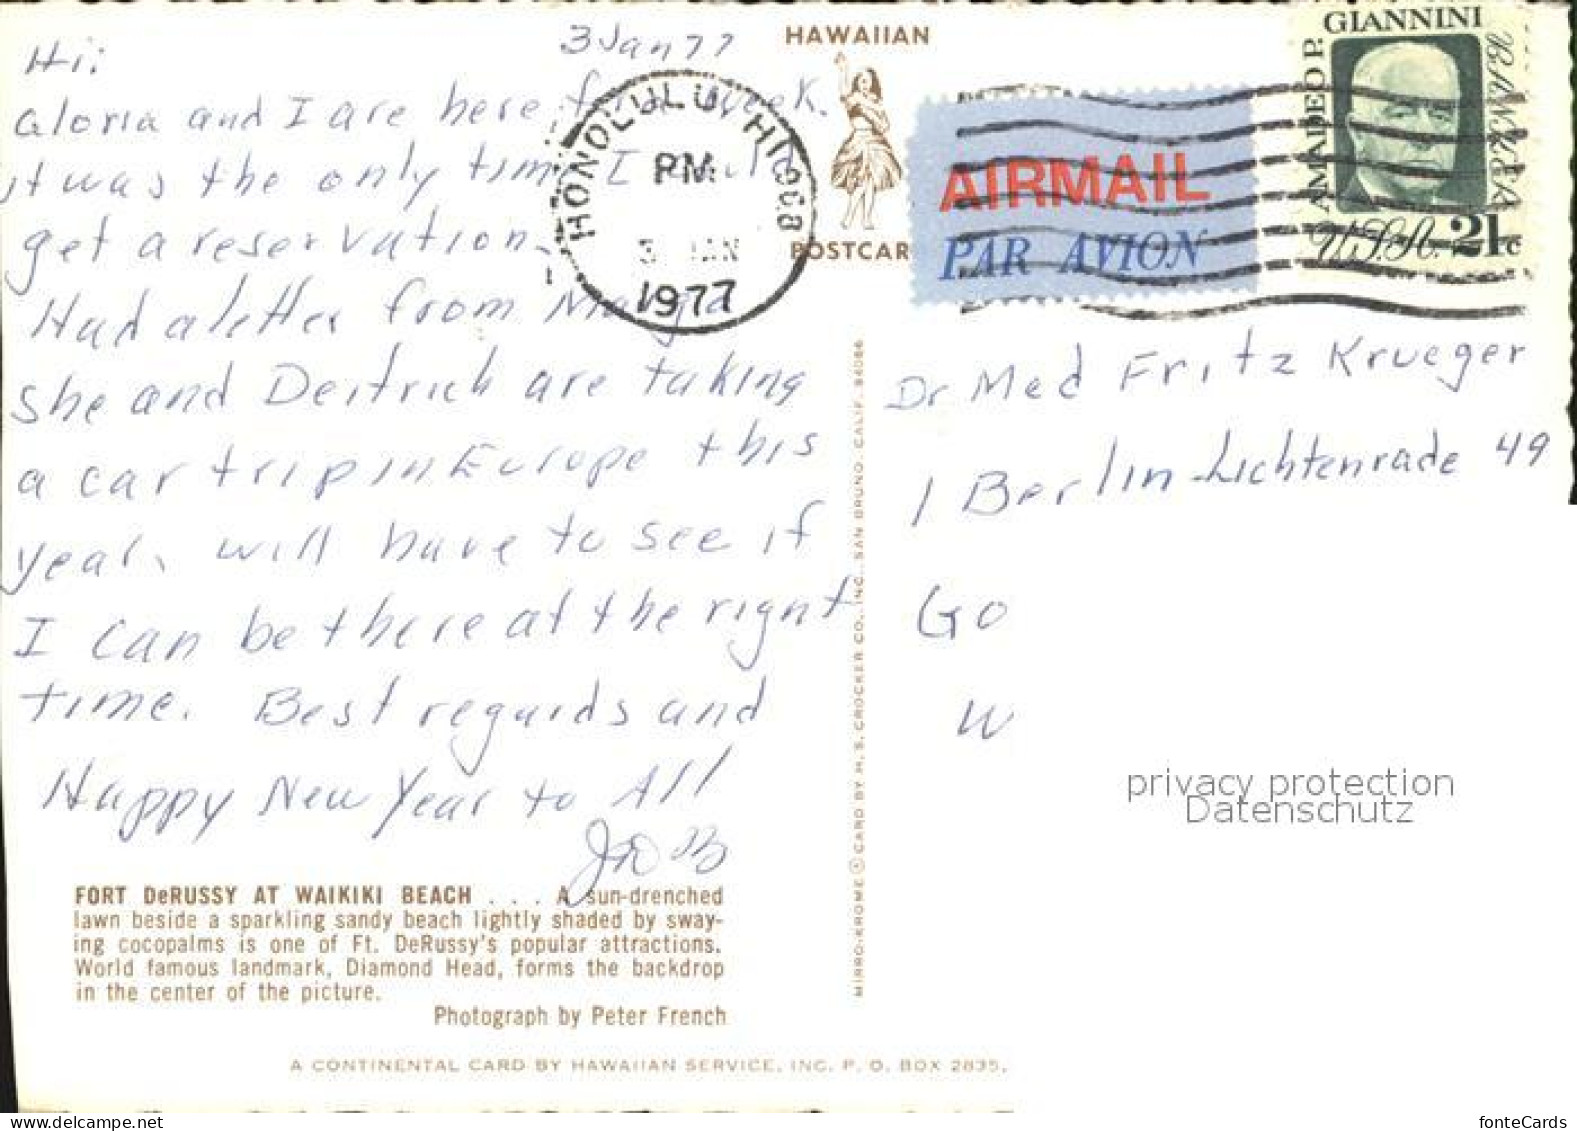 3 Jan 77
Hi:
Gloria and I are here for a week.
it was the only time I could
get a reservation.
Had a letter from
she and Deitrich are taking
a car trip in Europe this
year, will have to see if
I can be there at the right
time. Best regards and
Happy New Year to All
HAWAIIAN
POSTCAR
HONOLULU HI 968
PM
3 JAN
1977
AIRMAIL
PAR AVION
AMADEO P. GIANNINI
U.S.A. 21c
Dr Med Fritz Krueger
1 Berlin-Lichtenrade 49
Go
W
privacy protection
Datenschutz
FORT DeRUSSY AT WAIKIKI BEACH . . . A sun-drenched
lawn beside a sparkling sandy beach lightly shaded by sway-
ing cocopalms is one of Ft. DeRussy's popular attractions.
World famous landmark, Diamond Head, forms the backdrop
in the center of the picture.
Photograph by Peter French
MIRRO-KROME © CARD BY H. S. CROCKER CO., INC., SAN BRUNO, CALIF. 94066
A CONTINENTAL CARD BY HAWAIIAN SERVICE, INC. P. O. BOX 2835,
www.ansichtskarten-center.de
fonteCards